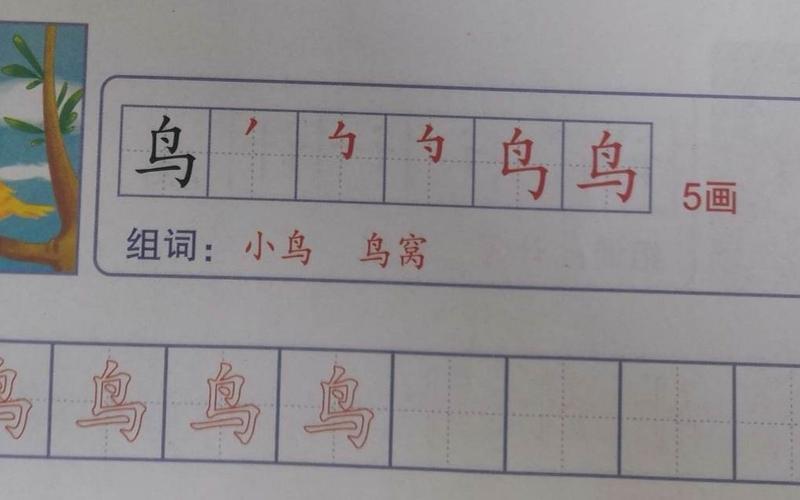 鸟 鸟 鸟 5画
组词：小鸟 鸟窝
鸟 鸟 鸟 鸟